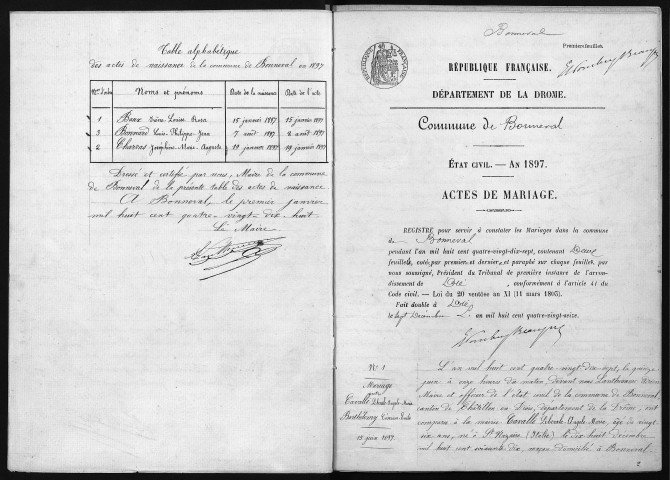 Table alphabétique
des actes de naissance de la commune de Bonneval en 1897
Nos d'ordre Noms et prénoms Date de la naissance Date de l'acte
1 Irène Louise Rosa 15 janvier 1897 15 janvier 1897
3 Bonnard Louis Philippe Jean 7 août 1897 8 août 1897
2 Charras Joséphine Marie Auguste 19 janvier 1897 19 janvier 1897
Dressé et certifié par nous, Maire de la commune
de Bonneval de la présente table des actes de naissance.
A Bonneval, le premier janvier
mil huit cent quatre-vingt-dix-huit
Le Maire
Bonneval
Premier feuillet.
RÉPUBLIQUE FRANÇAISE.
DÉPARTEMENT DE LA DROME.
Commune de Bonneval
ÉTAT CIVIL. — AN 1897.
ACTES DE MARIAGE.
REGISTRE pour servir à constater les Mariages dans la commune
de Bonneval
pendant l'an mil huit cent quatre-vingt-dix-sept, contenant Deux
feuillets, coté par premier et dernier, et paraphé sur chaque feuillet, par
nous soussigné, Président du Tribunal de première instance de l'arron-
dissement de Die, conformément à l'article 41 du
Code civil. — Loi du 20 ventôse an XI (11 mars 1803).
Fait double à Die
le sept Décembre L'an mil huit cent quatre-vingt-seize.
N° 1
Mariage
entre
Cavallé
Barthélemy
15 juin 1897.
L'an mil huit cent quatre-vingt-dix-sept, le quinze
juin à onze heures du matin devant nous
Maire et officier de l'état civil de la commune de Bonneval,
canton de Châtillon en Diois, département de la Drôme, est
comparu à la mairie Cavallé Marie, âgé de vingt
six ans, né à St Nazaire (Italie) le dix huit décembre
mil huit cent soixante dix, maçon domicilié à Bonneval
2